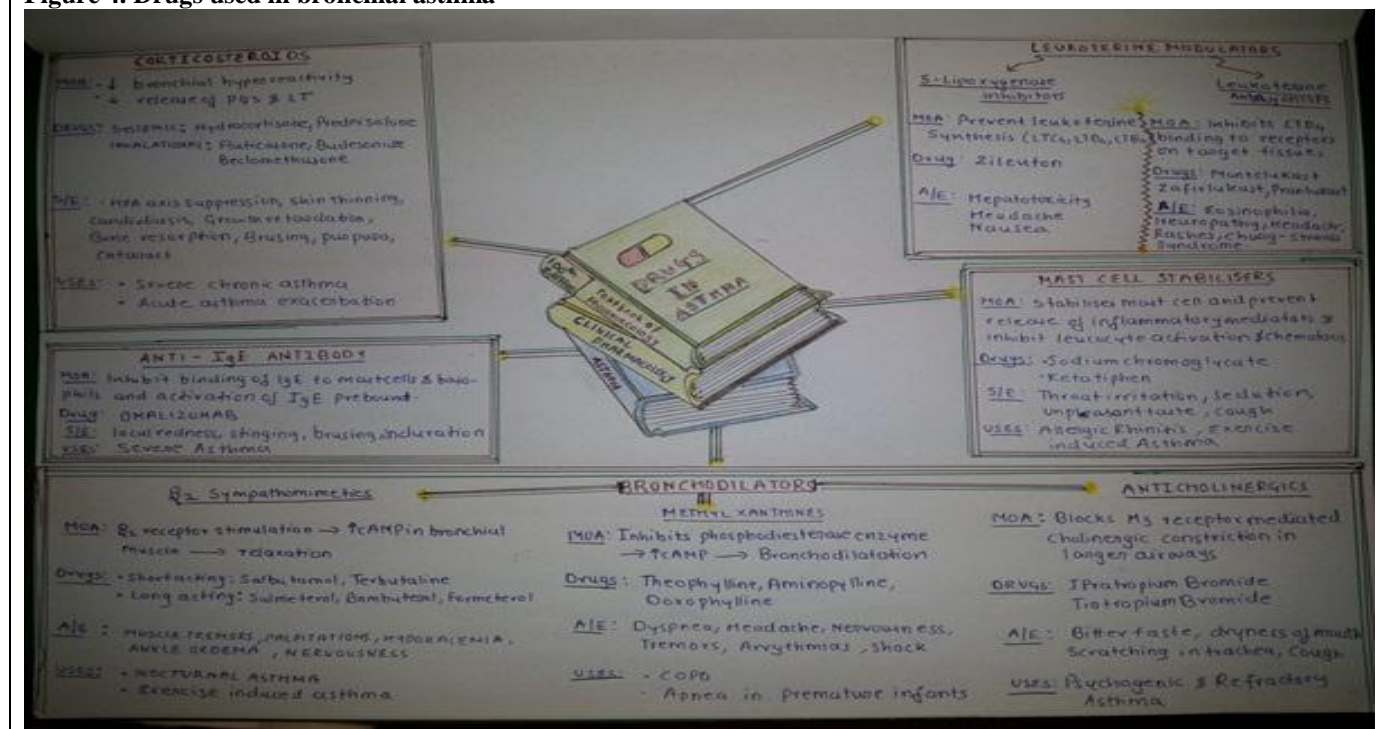 Figure 4. Drugs used in bronchial asthma
CORTICOSTEROIDS
MOA: ↓ bronchial hyperreactivity
↓ release of PGs & LT
DRUGS: SYSTEMIC: Hydrocortisone, Prednisolone
INHALATIONAL: Fluticasone, Budesonide
Beclomethasone
S/E: HPA axis suppression, skin thinning,
Candidiasis, Growth retardation,
Bone resorption, Brusing, purpura,
Cataract
USES: • Severe chronic asthma
• Acute asthma exacerbation
ANTI-IgE ANTIBODY
MOA: Inhibit binding of IgE to mastcells & baso-
phils and activation of IgE prebound.
Drug: OMALIZUMAB
S/E: local redness, stinging, brusing, induration
USES: Severe Asthma
DRUGS
IN
ASTHMA
Textbook of
Pharmacology
CLINICAL
PHARMACOLOGY
ASTHMA
LEUKOTERINE MODULATORS
5-Lipoxygenase
inhibitors
MOA: Prevent leukotenine
Synthesis (LTC4, LTD4, LTE4)
Drug: Zileuton
A/E: Hepatotoxicity
Headache
Nausea
Leukoteiene
Antagonists
MOA: Inhibits LTD4
binding to receptors
on taoget tissue,
Drugs: Montelukast
Zafirlukast, Pranlukast
A/E: Eosinophilia,
Neuropathy, Headache,
Rashes, Chuag-strauss
Syndrome
MAST CELL STABILISERS
MOA: Stabilises mast cell and prevent
release of inflammatory mediators &
inhibit leucocyte activation & chemotaxis
Drugs: • Sodium chromoglycate
• Ketotiphen
S/E: Throat irritation, sedation,
Unpleasant taste, cough
USES: Allergic Rhinitis, Exercise
induced Asthma
BRONCHODILATORS
β2 Sympathomimetics
MOA: β2 receptor stimulation → ↑cAMP in bronchial
muscle → relaxation
Drugs: • Short acting: Salbutamol, Terbutaline
• Long acting: Salmeterol, Bambuterol, Formeterol
A/E: MUSCLE TREMORS, PALPITATIONS,
ANKLE OEDEMA, NERVOUSNESS
USES: • NOCTURNAL ASTHMA
• Exercise induced asthma
METHYL XANTHINES
MOA: Inhibits phosphodiesterase enzyme
→ ↑cAMP → Bronchodilatation
Drugs: Theophylline, Aminopylline,
Doxophylline
A/E: Dyspnea, Headache, Nervousness,
Tremors, Arrythmias, Shock
USES: • COPD
• Apnea in premature infants
ANTICHOLINERGICS
MOA: Blocks M3 receptor mediated
Cholinergic constriction in
langer airways
DRUGS: IPratropium Bromide
Tiotropium Bromide
A/E: Bitter taste, dryness of mouth
Scratching in trachea, Cough
USES: Psychogenic & Refractory
Asthma